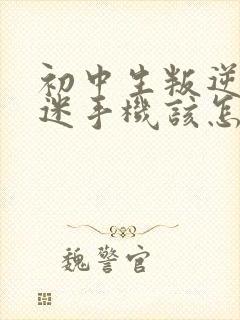 初中生叛逆
迷手機該怎
魏警官